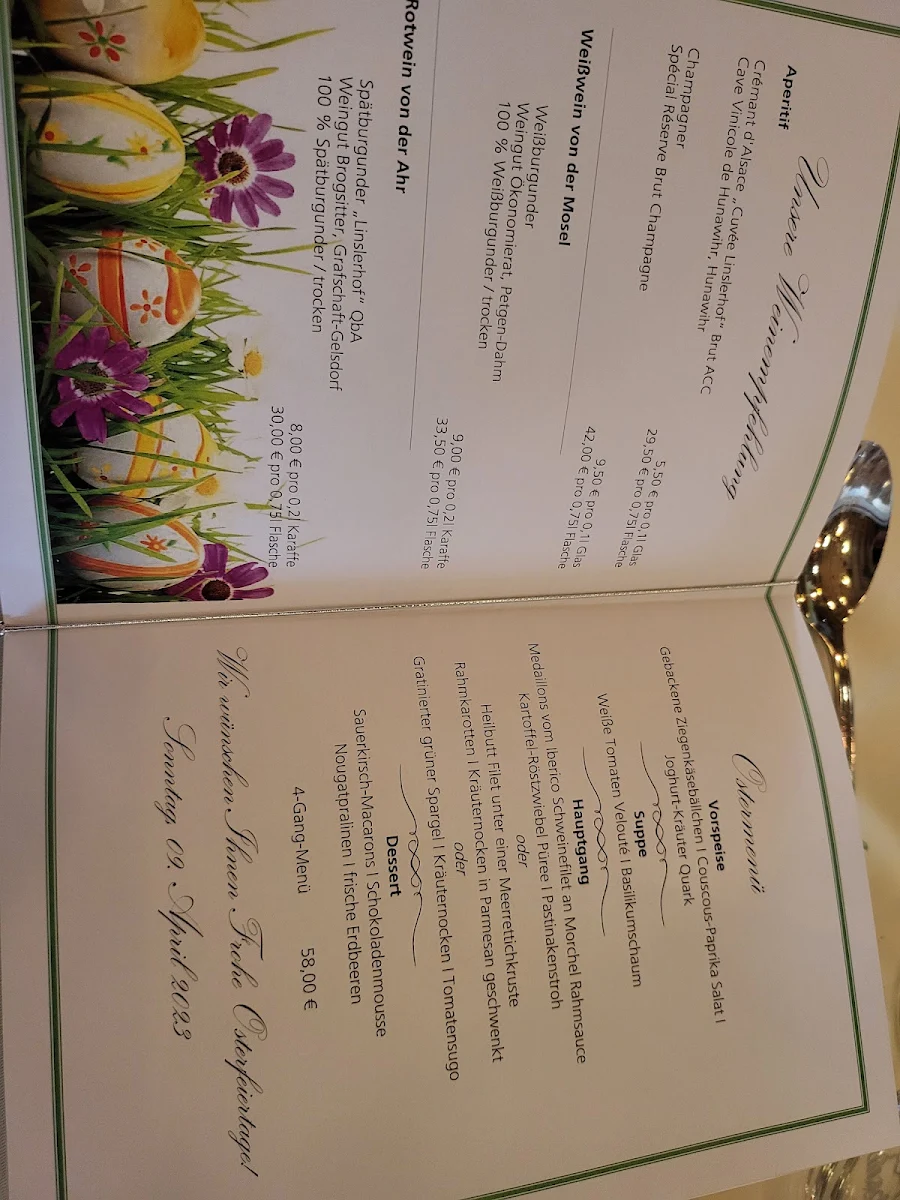 Unsere Weinempfehlung
Aperitif
Crémant d'Alsace „Cuvée Linslerhof“ Brut ACC
Cave Vinicole de Hunawihr, Hunawihr
5,50 € pro 0,1l Glas
29,50 € pro 0,75l Flasche
Champagner
Spécial Réserve Brut Champagne
9,50 € pro 0,1l Glas
42,00 € pro 0,75l Flasche
Weißwein von der Mosel
Weißburgunder
Weingut Ökonomierat, Petgen-Dahm
100 % Weißburgunder / trocken
9,00 € pro 0,2l Karaffe
33,50 € pro 0,75l Flasche
Rotwein von der Ahr
Spätburgunder „Linslerhof“ QbA
Weingut Brogsitter, Grafschaft-Gelsdorf
100 % Spätburgunder / trocken
8,00 € pro 0,2l Karaffe
30,00 € pro 0,75l Flasche
Ostermenü
Vorspeise
Gebackene Ziegenkäsebällchen I Couscous-Paprika Salat I
Joghurt-Kräuter Quark
Suppe
Weiße Tomaten Velouté I Basilikumschaum
Hauptgang
Medaillons vom Iberico Schweinefilet an Morchel Rahmsauce
Kartoffel-Röstzwiebel Püree I Pastinakenstroh
oder
Heilbutt Filet unter einer Meerrettichkruste
Rahmkarotten I Kräuternocken in Parmesan geschwenkt
oder
Gratinierter grüner Spargel I Kräuternocken I Tomatensugo
Dessert
Sauerkirsch-Macarons I Schokoladenmousse
Nougatpralinen I frische Erdbeeren
4-Gang-Menü 58,00 €
Wir wünschen Ihnen Frohe Osterfeiertage!
Sonntag, 09. April 2023